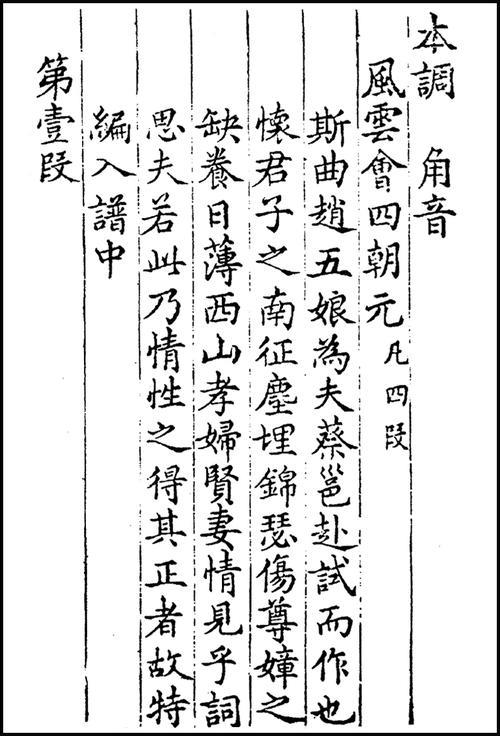 本調　角音
風雲會四朝元 凡四段
斯曲趙五娘為夫蔡邕赴試而作也
懷君子之南征塵埋錦瑟傷尊嫜之
缺養日薄西山孝婦賢妻情見乎詞
思夫若此乃情性之得其正者故特
編入譜中
第壹段